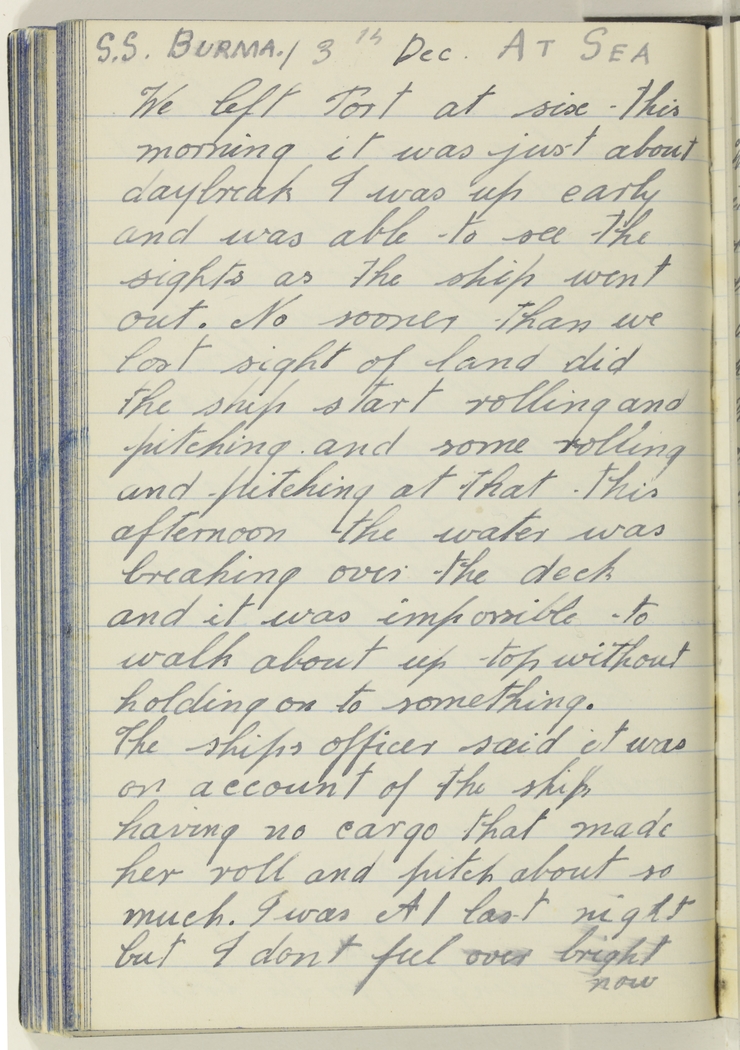 S.S. BURMA./ 3th Dec. AT SEA
We left Port at six this
morning it was just about
daybreak I was up early
and was able to see the
sights as the ship went
out. No sooner than we
lost sight of land did
the ship start rolling and
pitching. and some rolling
and pitching at that. this
afternoon the water was
breaking over the deck
and it was impossible to
walk about up top without
holding on to something.
The ships officer said it was
on account of the ship
having no cargo that made
her roll and pitch about so
much. I was A1 last night
but I dont feel over bright
now